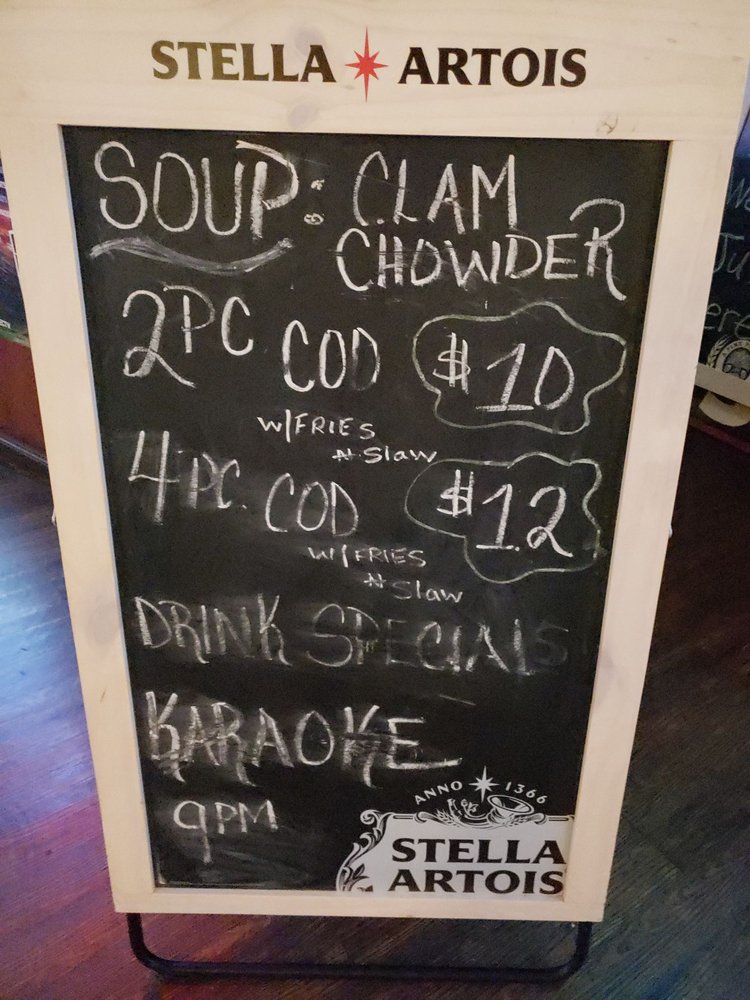 STELLA ARTOIS
SOUP: CLAM
CHOWDER
2PC COD $10
w/FRIES
N Slaw
4PC. COD $12
w/FRIES
N Slaw
DRINK SPECIALS
KARAOKE
9PM
ANNO 1366
STELLA
ARTOIS